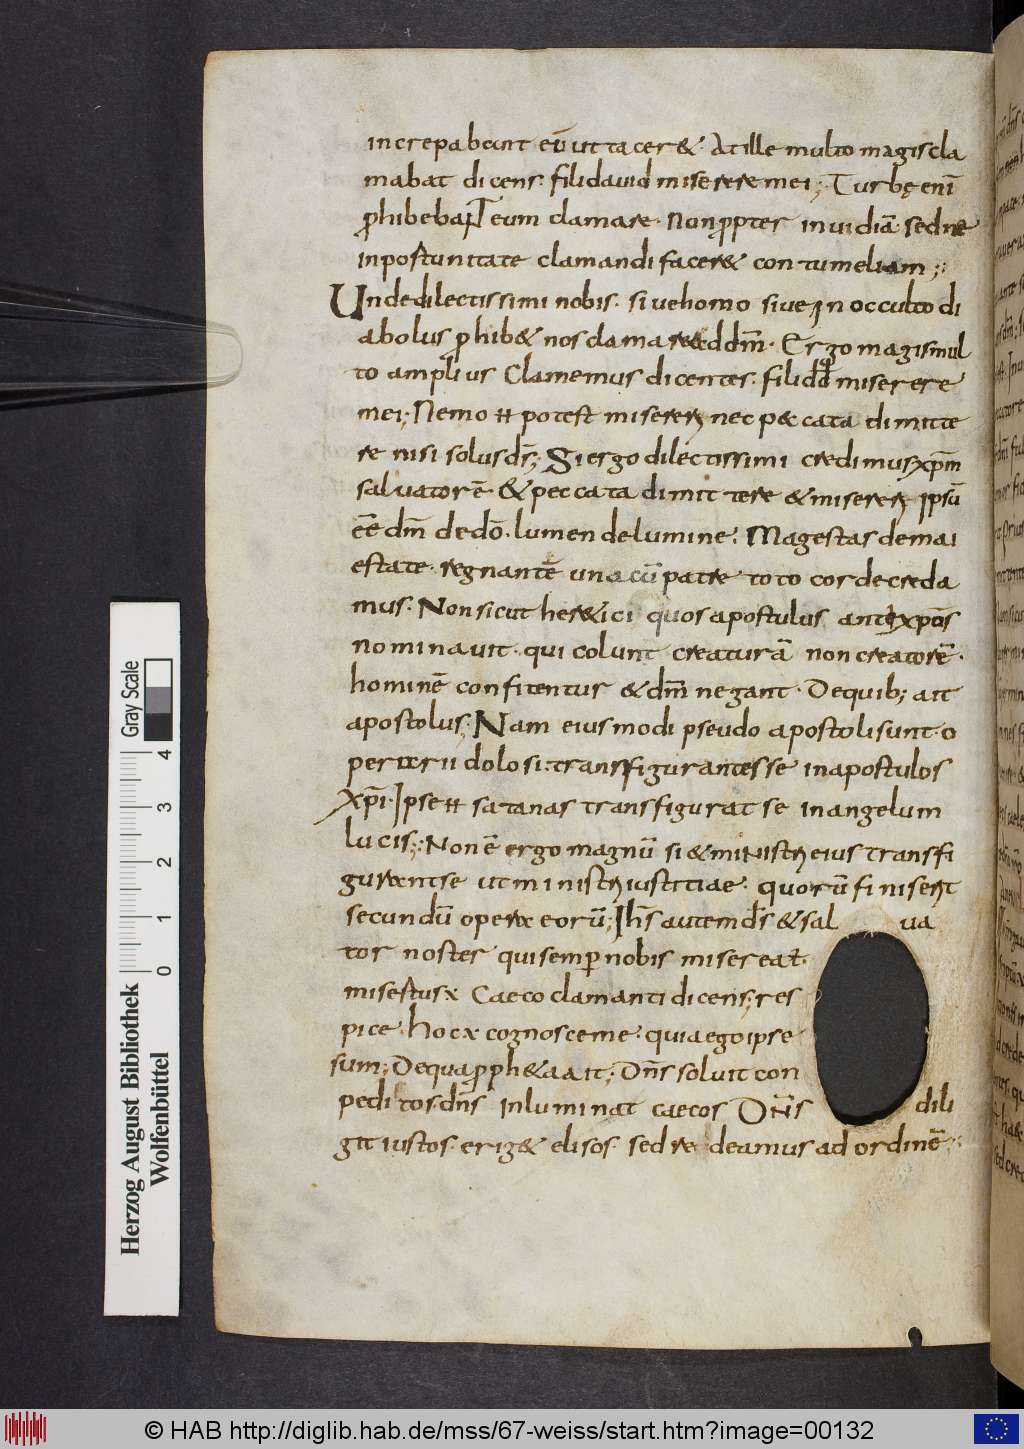 increpabant eū ut tacer&. At ille multo magis cla
mabat dicens. fili dauid miserere mei; Turbę enī
phibebant eum clamare. Non ppter inuidiā sed ne
inpostunitate clamandi facer& contumeliam;
Unde dilectissimi nobis. siue homo siue in occulto di
abolus phib& nos clamare ad dm̄. Ergo magis mul
to amplius Clamemus dicentes. fili dd miserere
mei; Nemo H potest miserer; nec p&cata dimitte
re nisi solus ds̄; Si ergo dilectissimi credimus xpm̄
saluatorē & peccata dimittere & miserer; ipsū
eē dm̄ de dō. lumen de lumine. Magestas de mai
estate. regnantē una cū patre toto corde creda
mus. Non sicut her&ici quos apostulus antexpos̄
nominauit. qui colunt creaturā non creatorē.
hominē confitentur & dm̄ negant. De quib; ait
apostolus; Nam eiusmodi pseudo apostoli sunt. o
perarii dolosi. transfigurantes se in apostulos
xpi. Ipse H satanas transfigurat se in angelum
lucis; Non ē ergo magnū si & ministri eius transfi
gurant se ut ministri iustitiae. quorū finis erit
secundū opera eorū; Ihs̄ autem ds̄ & sal ua
tor noster qui semper nobis misereat.
misertus x Caeco clamanti dicens; res
pice. hoc x cognosce me. quia ego ipse
sum; De qua pph&a ait; Dn̄s soluit con
peditos. dn̄s inluminat caecos Dn̄s dili
git iustos. erig& elisos. sed redeamus ad ordinē.
Gray Scale
0 1 2 3 4
Herzog August Bibliothek
Wolfenbüttel
© HAB http://diglib.hab.de/mss/67-weiss/start.htm?image=00132